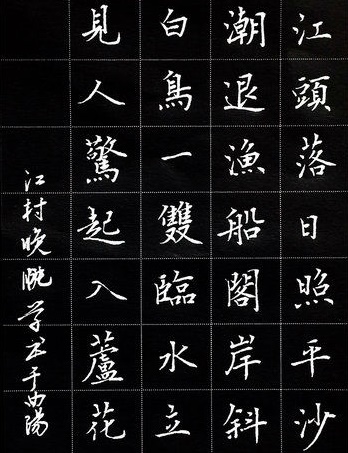 江頭落日照平沙
潮退漁船閣岸斜
白鳥一雙臨水立
見人驚起入蘆花
江村晚眺学书于曲陽